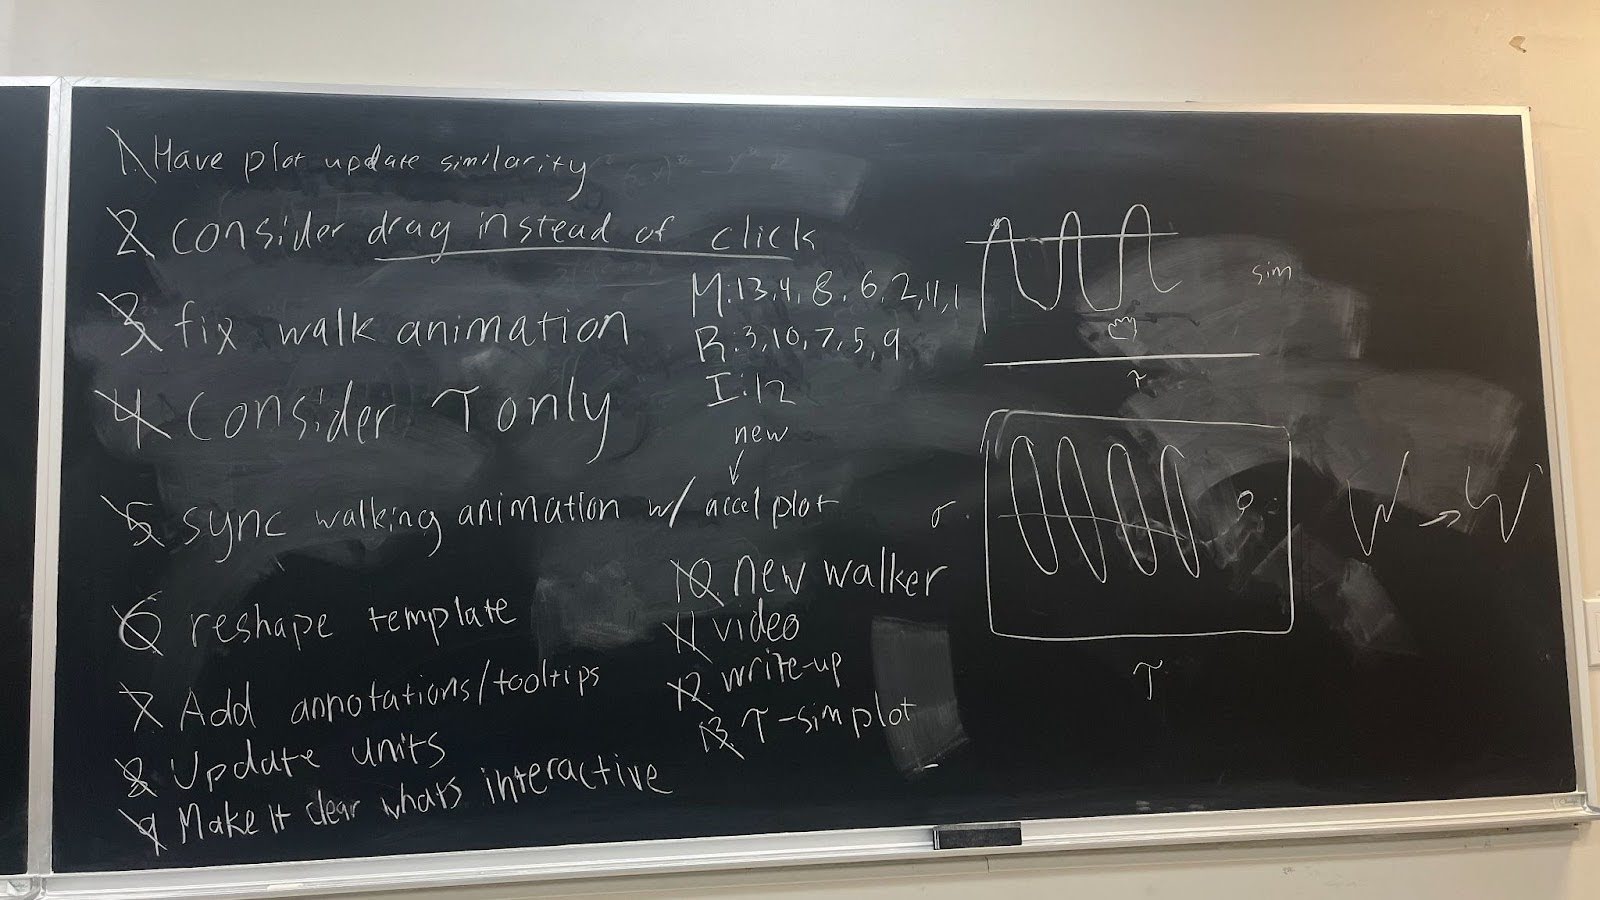 1. Have plot update similarity
2. Consider drag instead of click
3. fix walk animation
4. Consider τ only
5. sync walking animation w/ accel plot
new
6. reshape template
7. Add annotations/tooltips
8. Update units
9. Make it clear whats interactive
10. new walker
11. video
12. write-up
13. τ-sim plot
M: 13, 4, 8, 6, 2, 11, 1
R: 3, 10, 7, 5, 9
I: 12
sim
τ
σ
τ